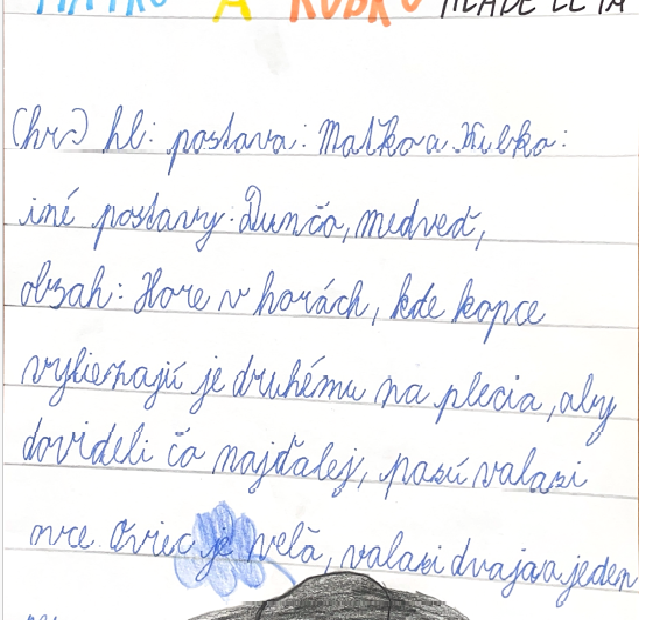 MAŤKO A KUBKO MLADÉ LETÁ
hl: postava: Maťko a Kubko:
iné postavy: Dunčo, medveď,
obsah: Hore v horách, kde kopce
vyliezajú je druhému na plecia, aby
dovideli čo najďalej, pasú valasi
ovce Oviec je velā, valasi dvaja a jeden